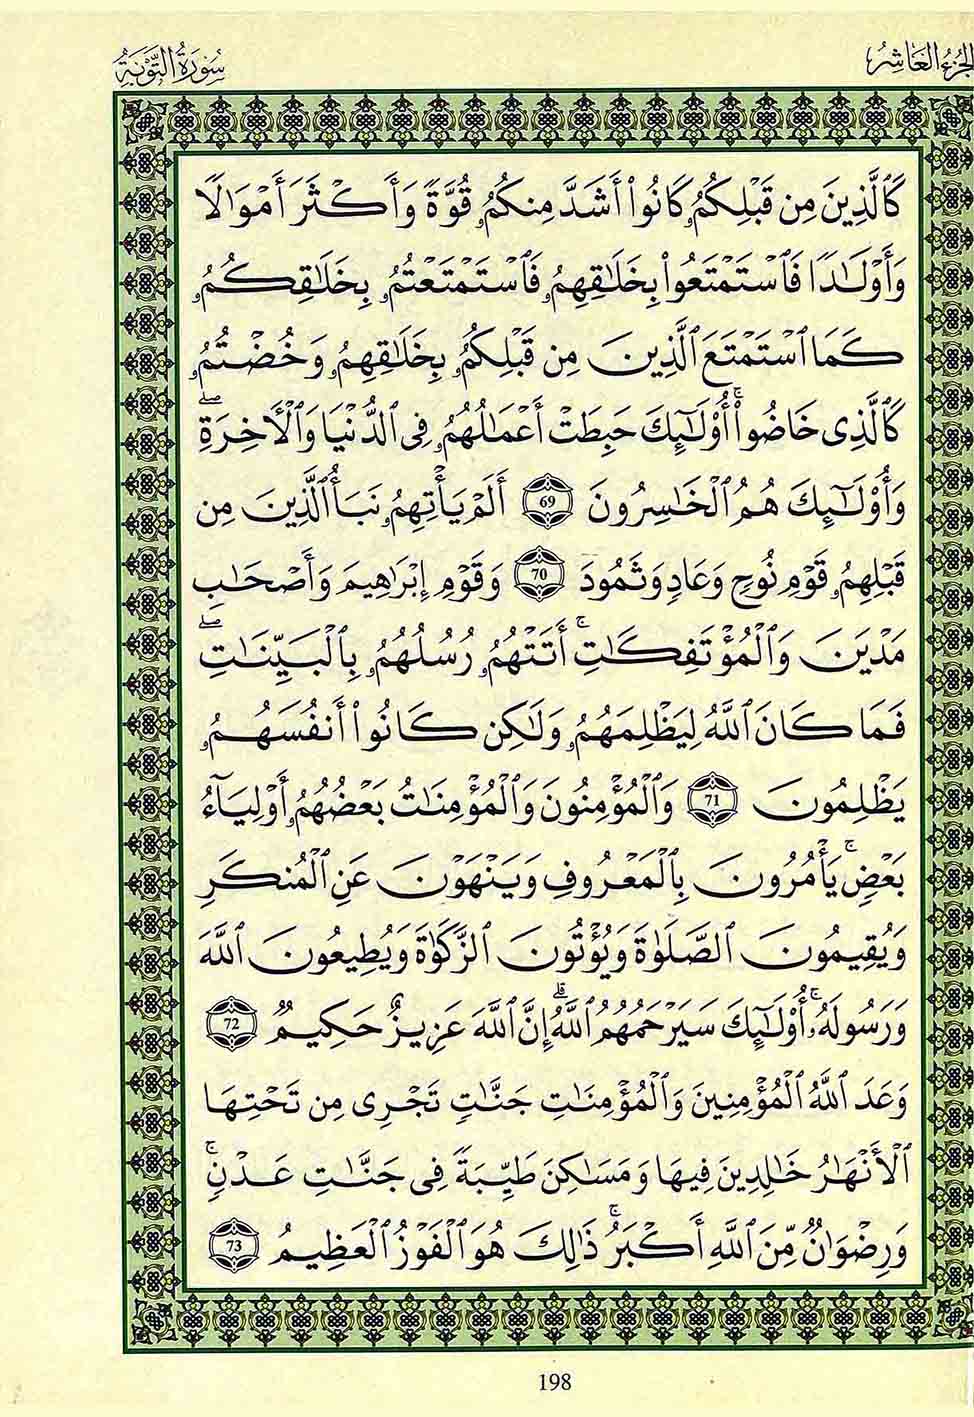 الجزء العاشر
سُورَةُ التَّوْبَةِ
كَٱلَّذِينَ مِن قَبْلِكُمُۥ كَانُوٓا۟ أَشَدَّ مِنكُمُۥ قُوَّةً وَأَكْثَرَ أَمْوَٰلًا
وَأَوْلَٰدًا فَٱسْتَمْتَعُوا۟ بِخَلَٰقِهِمُۥ فَٱسْتَمْتَعْتُمُۥ بِخَلَٰقِكُمُۥ
كَمَا ٱسْتَمْتَعَ ٱلَّذِينَ مِن قَبْلِكُمُۥ بِخَلَٰقِهِمُۥ وَخُضْتُمُۥ
كَٱلَّذِى خَاضُوٓا۟ ۚ أُو۟لَٰٓئِكَ حَبِطَتْ أَعْمَٰلُهُمُۥ فِى ٱلدُّنْيَا وَٱلْأَخِرَةِ ۖ
وَأُو۟لَٰٓئِكَ هُمُ ٱلْخَٰسِرُونَ 69 أَلَمْ يَأْتِهِمُۥ نَبَأُ ٱلَّذِينَ مِن
قَبْلِهِمُۥ قَوْمِ نُوحٍ وَعَادٍ وَثَمُودَ 70 وَقَوْمِ إِبْرَٰهِيمَ وَأَصْحَٰبِ
مَدْيَنَ وَٱلْمُؤْتَفِكَٰتِ ۚ أَتَتْهُمُۥ رُسُلُهُمُۥ بِٱلْبَيِّنَٰتِ ۖ
فَمَا كَانَ ٱللَّهُ لِيَظْلِمَهُمُۥ وَلَٰكِن كَانُوٓا۟ أَنفُسَهُمُۥ
يَظْلِمُونَ 71 وَٱلْمُؤْمِنُونَ وَٱلْمُؤْمِنَٰتُ بَعْضُهُمُۥ أَوْلِيَآءُ
بَعْضٍ ۚ يَأْمُرُونَ بِٱلْمَعْرُوفِ وَيَنْهَوْنَ عَنِ ٱلْمُنكَرِ
وَيُقِيمُونَ ٱلصَّلَوٰةَ وَيُؤْتُونَ ٱلزَّكَوٰةَ وَيُطِيعُونَ ٱللَّهَ
وَرَسُولَهُۥٓ ۚ أُو۟لَٰٓئِكَ سَيَرْحَمُهُمُ ٱللَّهُ ۗ إِنَّ ٱللَّهَ عَزِيزٌ حَكِيمٌ 72
وَعَدَ ٱللَّهُ ٱلْمُؤْمِنِينَ وَٱلْمُؤْمِنَٰتِ جَنَّٰتٍ تَجْرِى مِن تَحْتِهَا
ٱلْأَنْهَٰرُ خَٰلِدِينَ فِيهَا وَمَسَٰكِنَ طَيِّبَةً فِى جَنَّٰتِ عَدْنٍ ۚ
وَرِضْوَٰنٌ مِّنَ ٱللَّهِ أَكْبَرُ ۚ ذَٰلِكَ هُوَ ٱلْفَوْزُ ٱلْعَظِيمُ 73
198